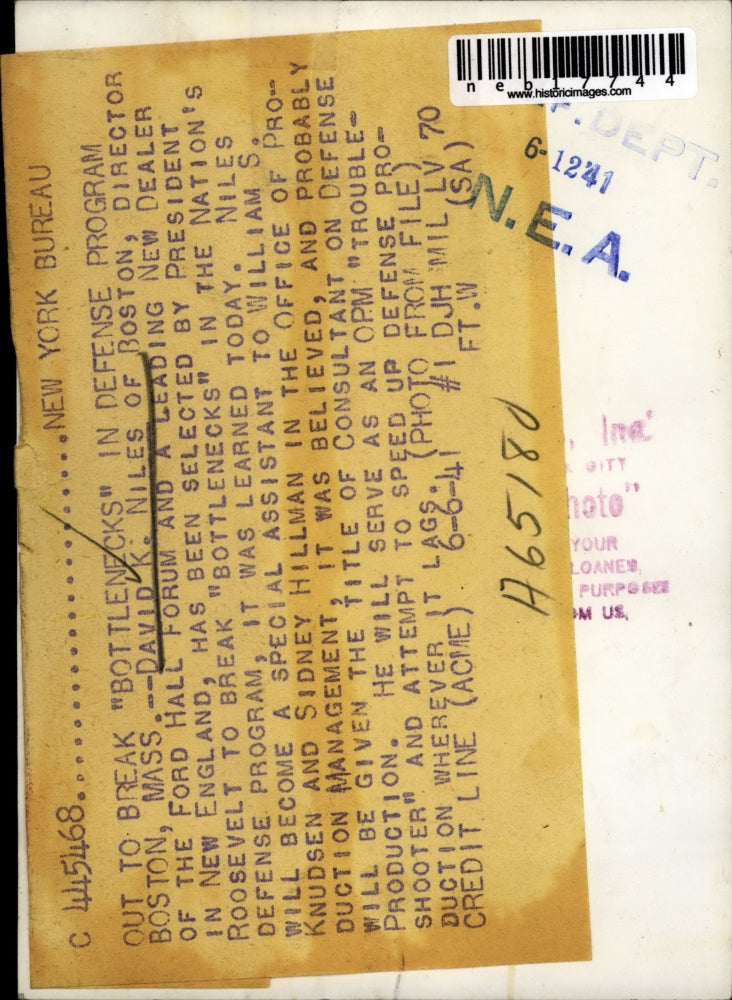 C 445468....................NEW YORK BUREAU
OUT TO BREAK "BOTTLENECKS" IN DEFENSE PROGRAM
BOSTON, MASS.--DAVID K. NILES OF BOSTON, DIRECTOR
OF THE FORD HALL FORUM AND A LEADING NEW DEALER
IN NEW ENGLAND, HAS BEEN SELECTED BY PRESIDENT
ROOSEVELT TO BREAK "BOTTLENECKS" IN THE NATION'S
DEFENSE PROGRAM, IT WAS LEARNED TODAY. NILES
WILL BECOME A SPECIAL ASSISTANT TO WILLIAM S.
KNUDSEN AND SIDNEY HILLMAN IN THE OFFICE OF PRO--
DUCTION MANAGEMENT, IT WAS BELIEVED, AND PROBABLY
WILL BE GIVEN THE TITLE OF CONSULTANT ON DEFENSE
PRODUCTION. HE WILL SERVE AS AN OPM "TROUBLE-
SHOOTER" AND ATTEMPT TO SPEED UP DEFENSE PRO-
DUCTION WHEREVER IT LAGS. (PHOTO FROM FILE)
CREDIT LINE (ACME) 6-6-41 #1 DJH MIL LV 70
FT.W (SA)
A65180
neb17744
www.historicimages.com
DEPT.
6-1241
N.E.A.
, Inc
CITY
hoto"
YOUR
LOANED,
PURPOSES
OM US,